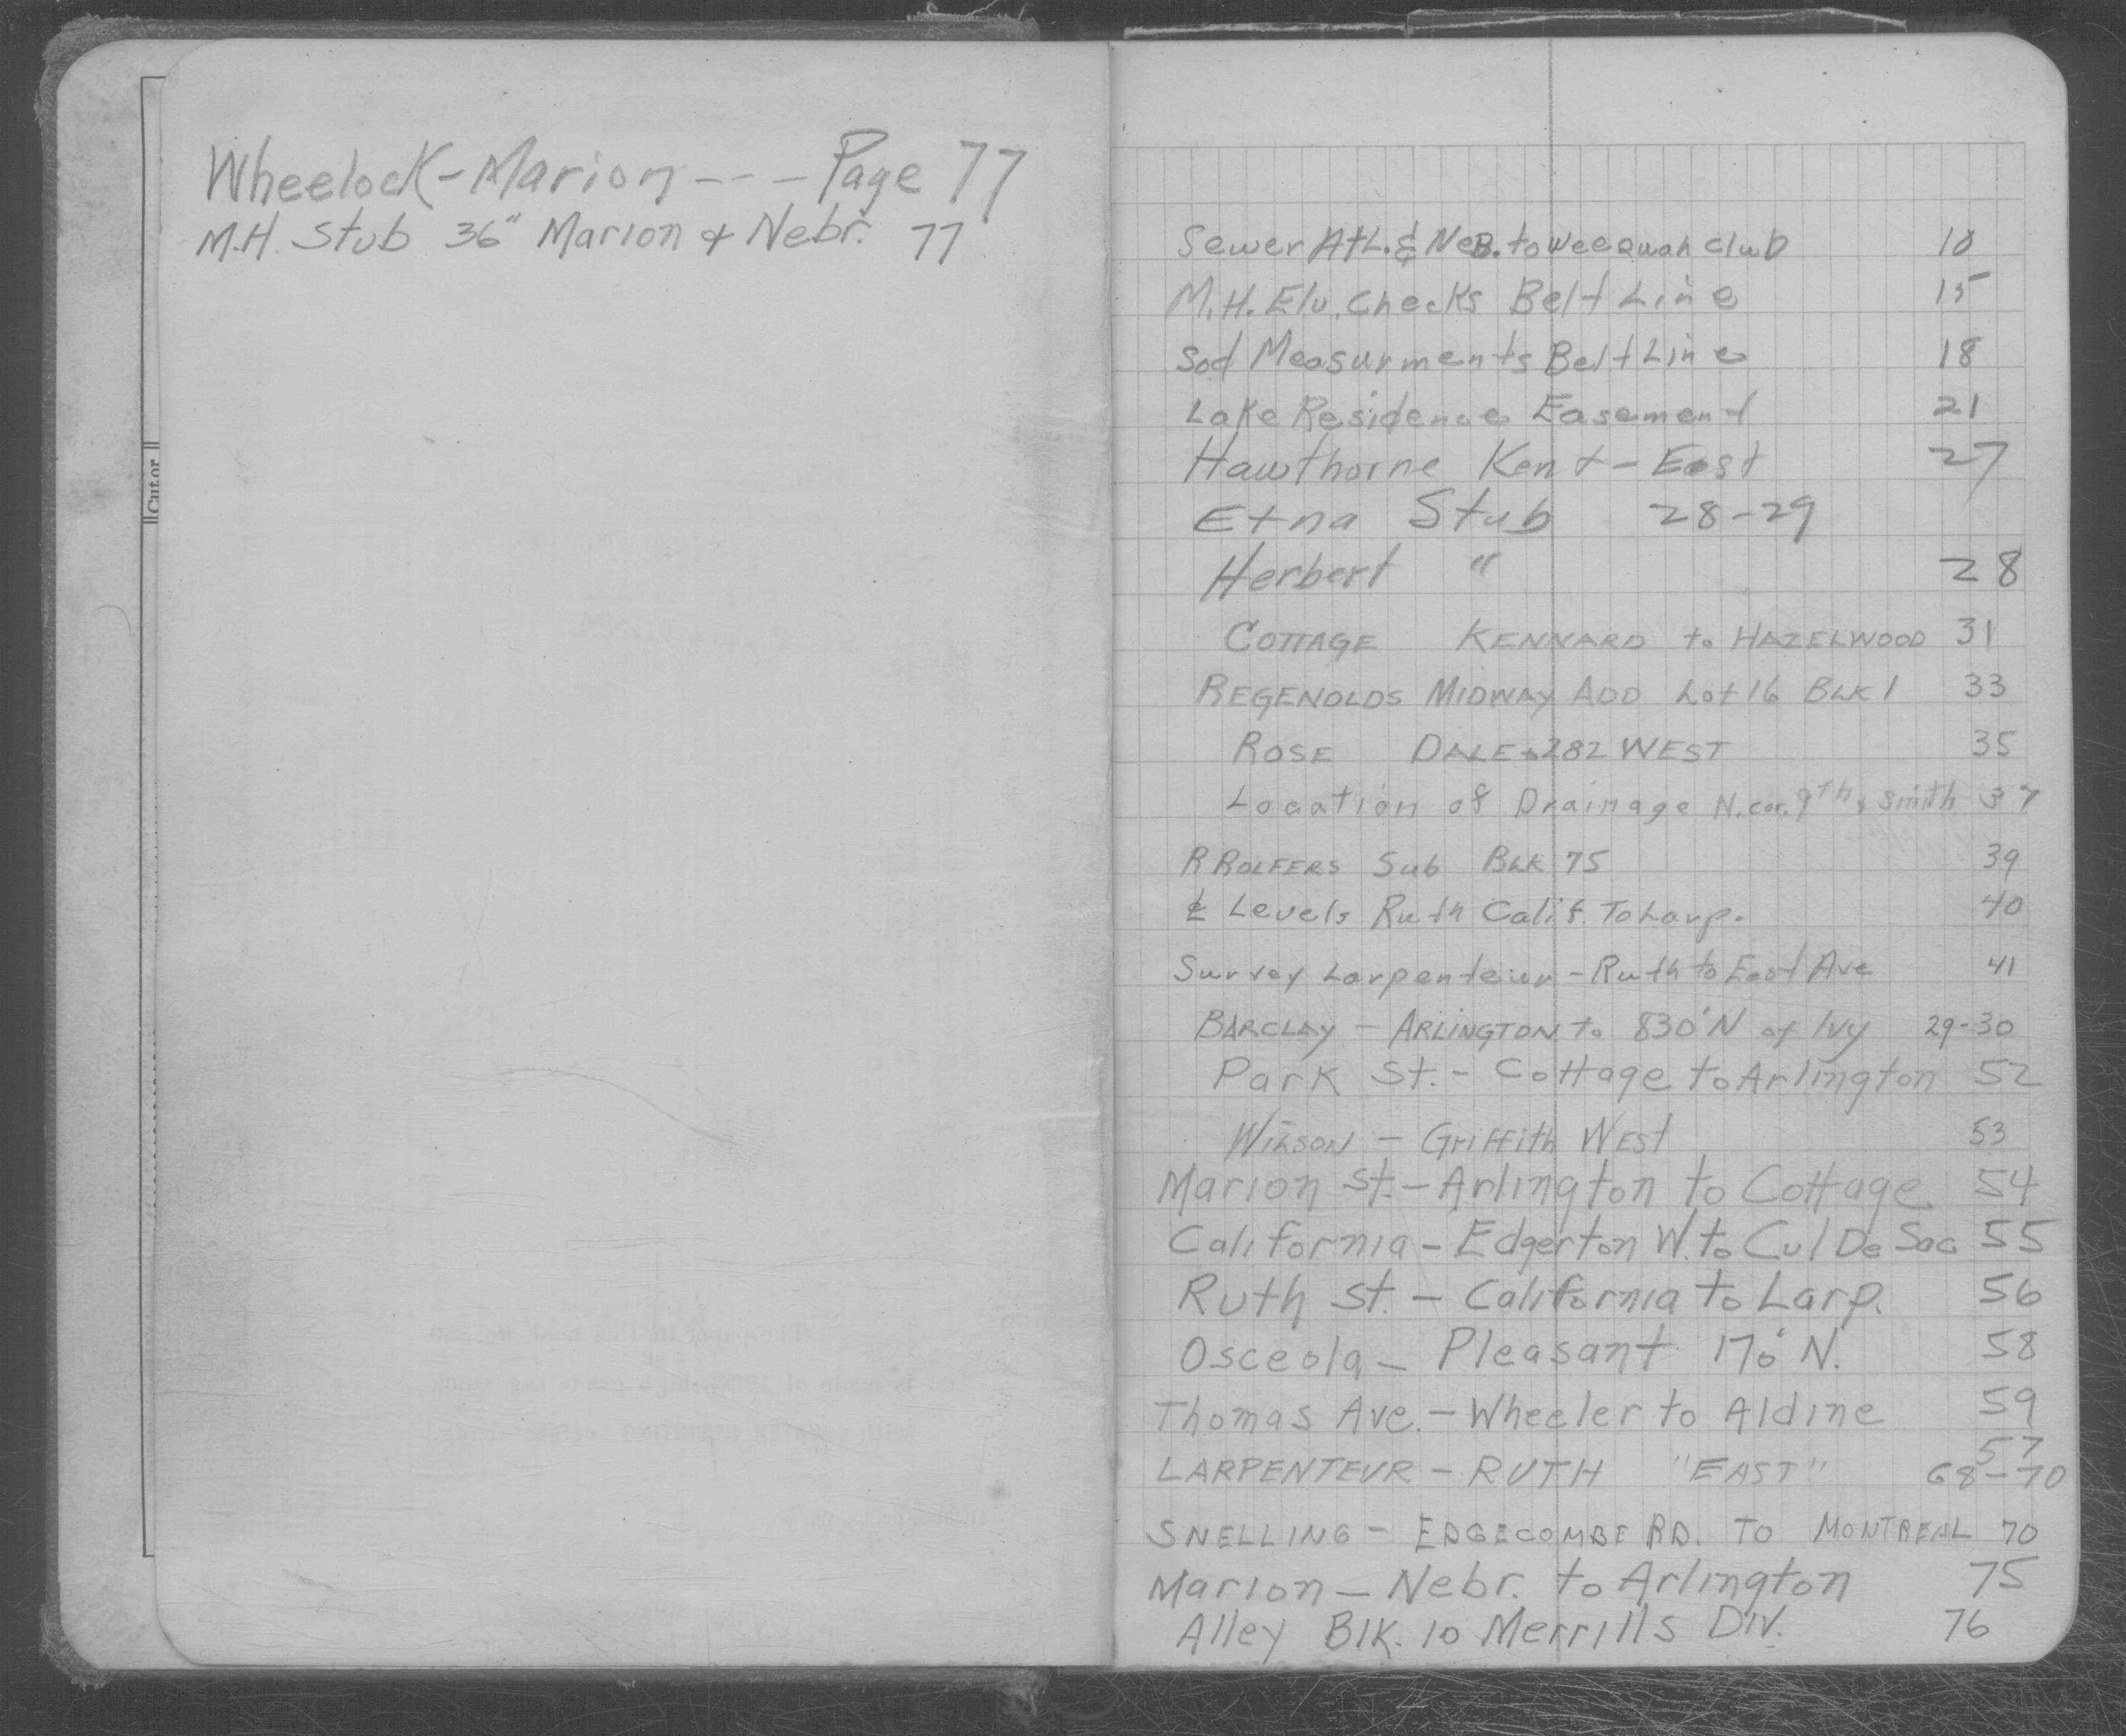 Wheelock-Marion --- Page 77
M.H. Stub 36" Marion & Nebr. 77
Cut or
Sewer Atl. & Neb. to Weequah Club 10
M.H. Elv. Checks Belt Line 15
Sod Measurments Belt Line 18
Lake Residence Easement 21
Hawthorne Kent - East 27
Etna Stub 28-29
Herbert " 28
COTTAGE KENNARD to HAZELWOOD 31
REGENOLDS MIDWAY ADD Lot 16 BLK 1 33
ROSE DALE to 282 WEST 35
Location of Drainage N. cor. 9th & Smith 37
R ROLFERS Sub BLK 75 39
℄ Levels Ruth Calif. To Larp. 40
Survey Larpenteur - Ruth to East Ave 41
BARCLAY - ARLINGTON to 830' N of Ivy 29-30
Park St. - Cottage to Arlington 52
WILSON - Griffith WEST 53
Marion St. - Arlington to Cottage 54
California - Edgerton W. to Cul De Sac 55
Ruth St. - California to Larp. 56
Osceola - Pleasant 170' N. 58
Thomas Ave. - Wheeler to Aldine 59
57
LARPENTEUR - RUTH "EAST" 68-70
SNELLING - EDGECOMBE RD. TO MONTREAL 70
Marion - Nebr. to Arlington 75
Alley Blk. 10 Merrills Div. 76